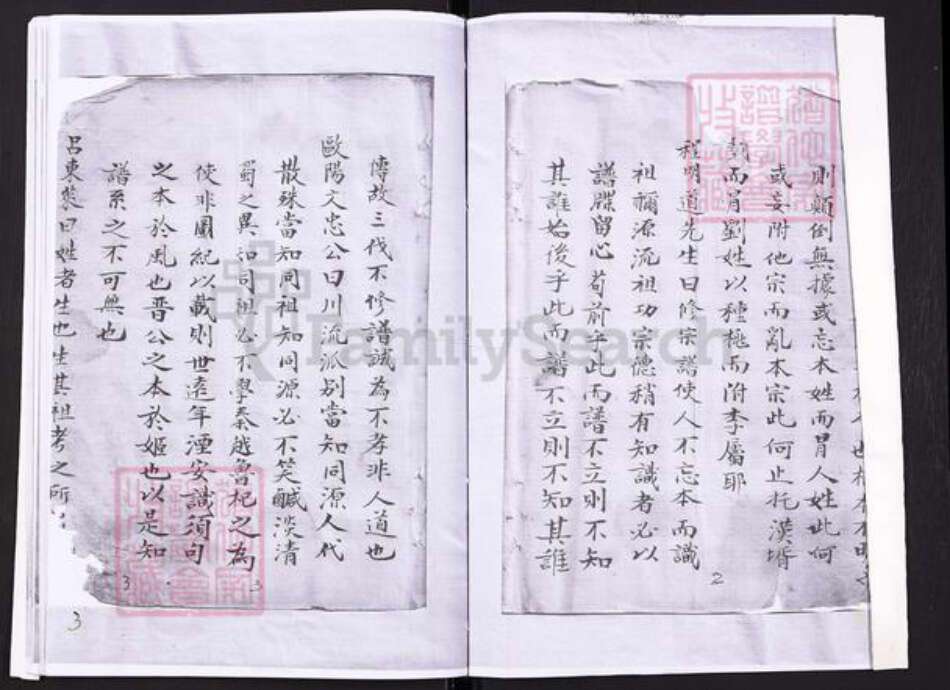 則顛倒無據或忘本姓而冒人姓此何
或妄附他宗而亂本宗此何止托漢壻
而冐劉姓以種桃而附李屬耶
程明道先生曰修宗譜使人不忘本而識
祖禰源流祖功宗德稍有知識者必以
譜牒留心荀前乎此而譜不立則不知
其誰始後乎此而譜不立則不知其誰
2
傳故三代不修譜誠為不孝非人道也
歐陽文忠公曰川流派别當知同源人代
散殊當知同祖知同源必不笑鹹淡清
蜀之異知同祖必不學秦越魯杞之為
使非圖紀以載則世遠年湮安識須句
之本於風也晋公之本於姬也以是知
譜系之不可無也
呂東萊曰姓者生也生其祖考之所
3
3
3
FamilySearch